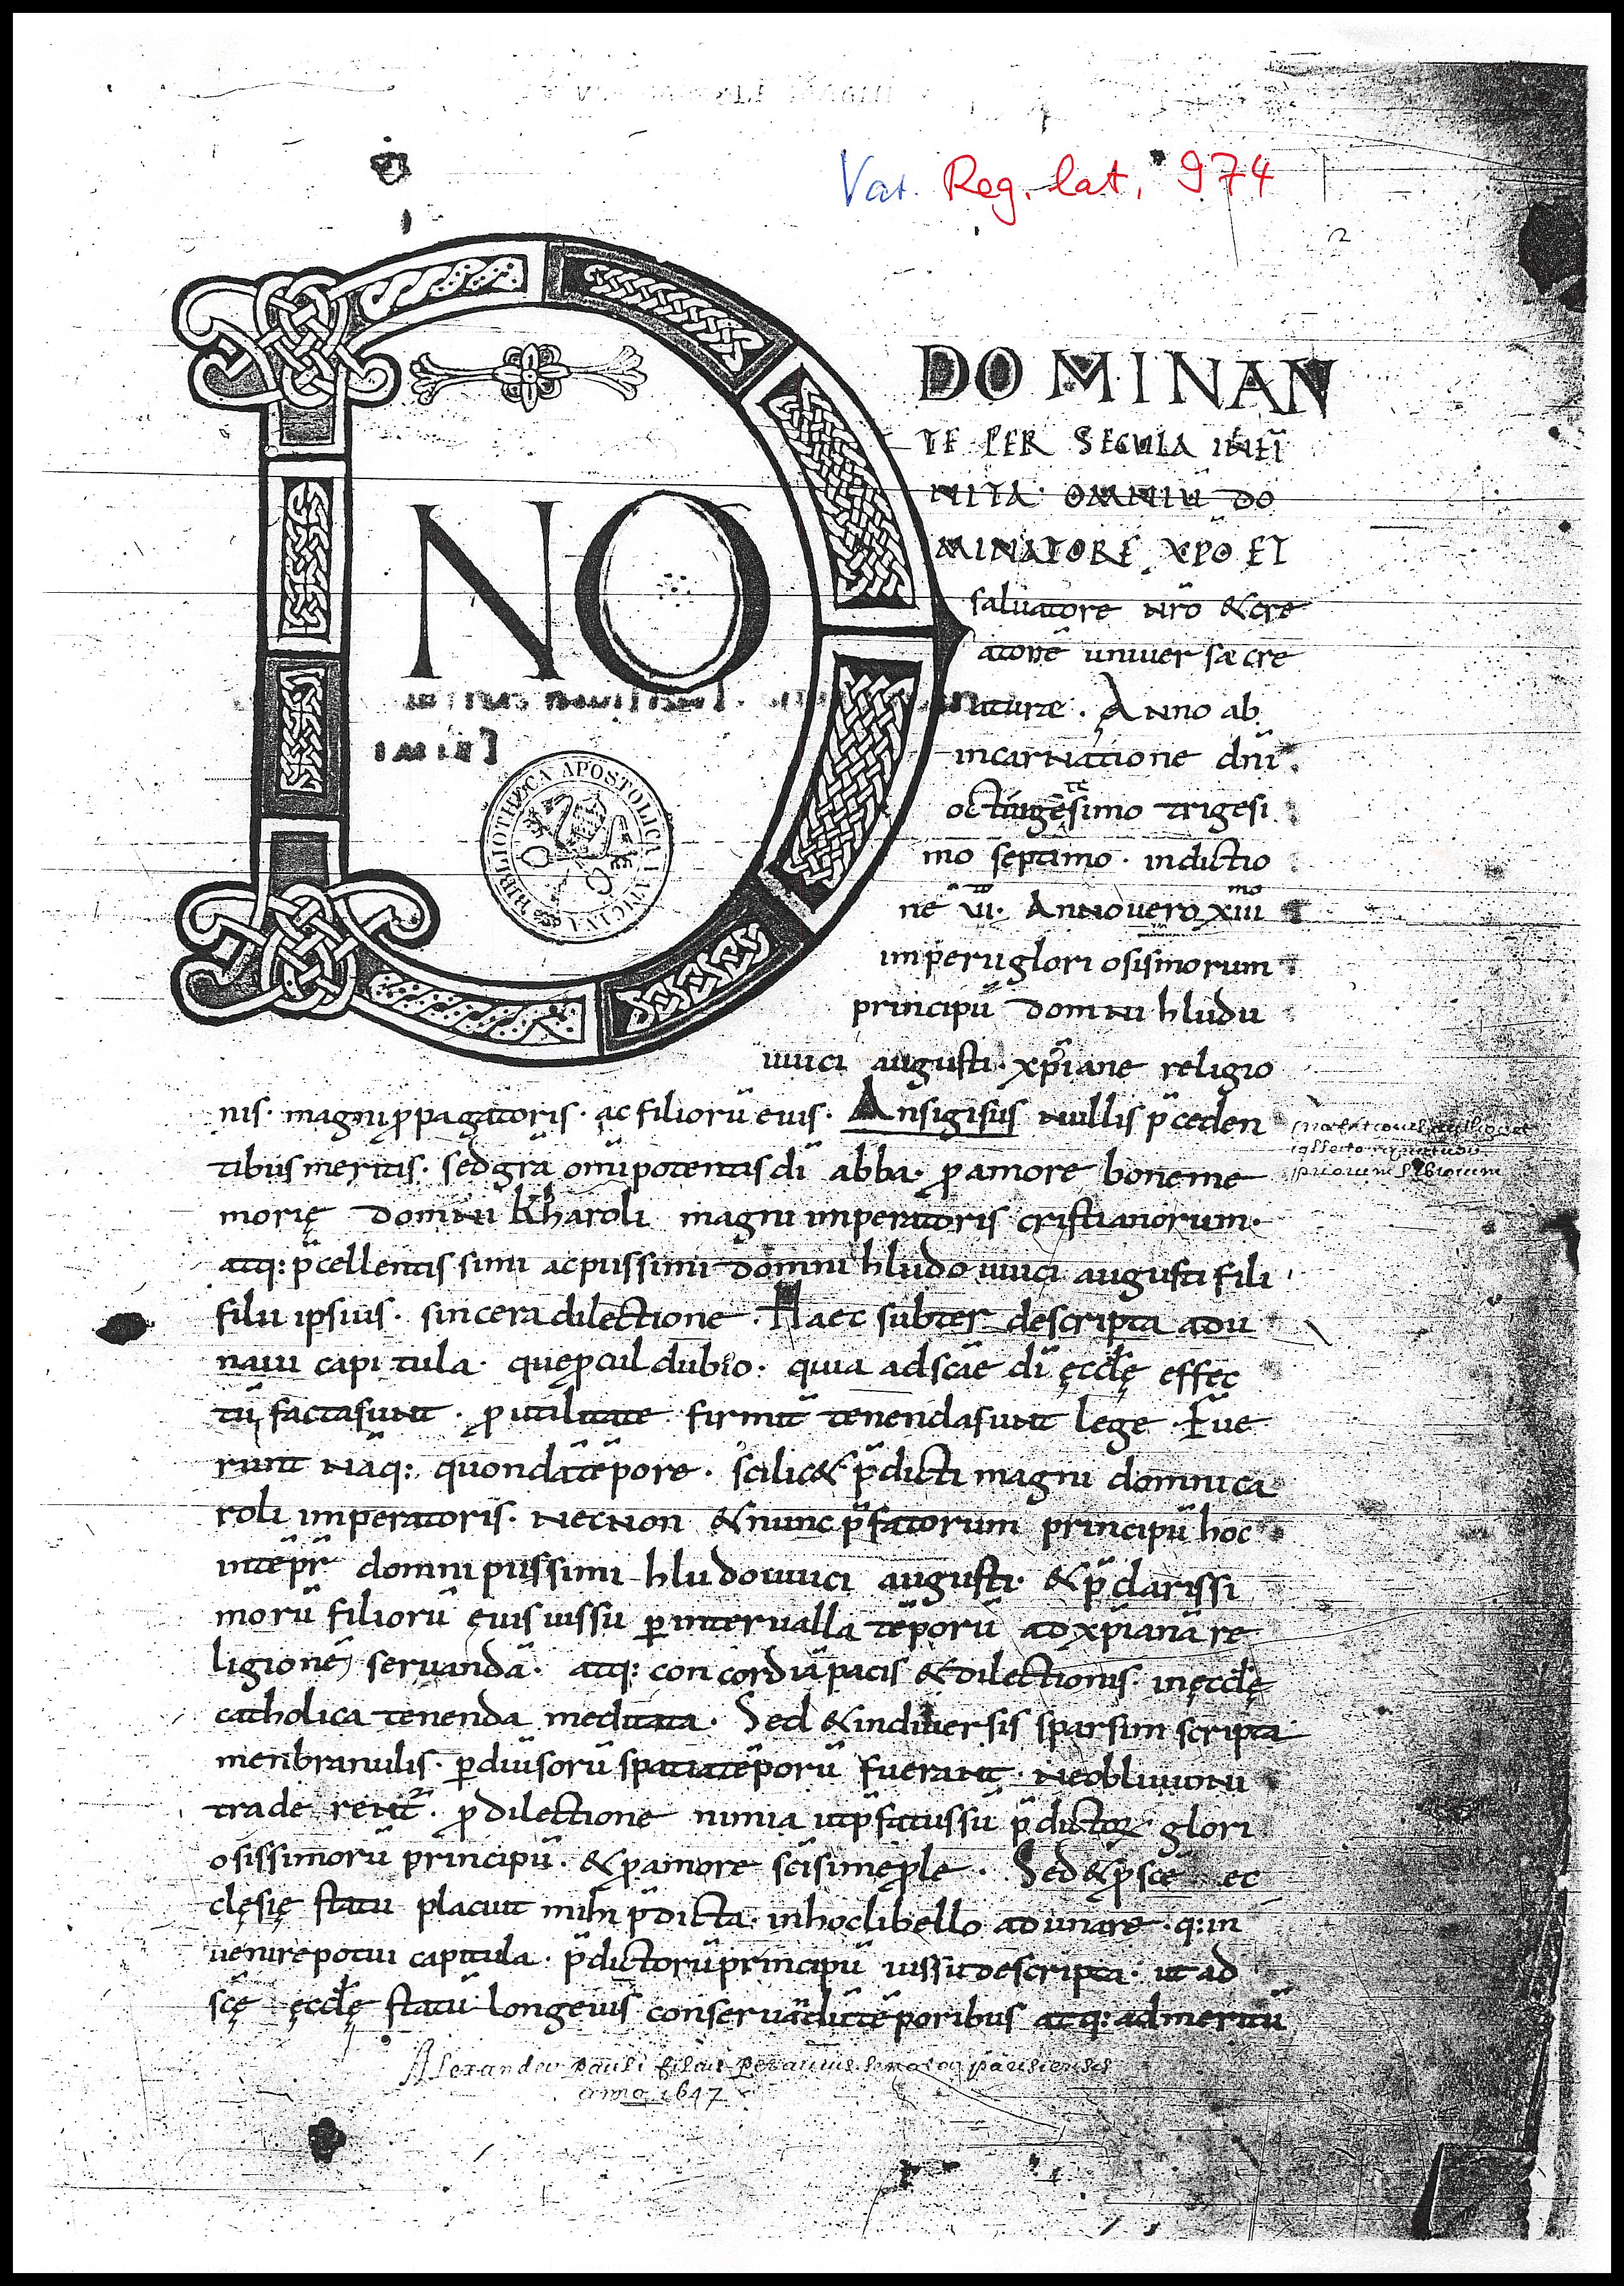 Vat. Reg. lat. 974
2
DNO
DOMINAN
TE PER SECULA INFĪ
NITA· OMNIŪ DO
MINATORE XP̄O ET
saluatore nr̄o &cre
atorē uniuersæ cre
aturæ. Anno ab
incarnatione dn̄i
octingētesimo trigesi
mo septimo· indictio
nē Anno uero xiii mo
imperii gloriosissimorum
principū domni hludu
uuici augusti· xp̄iane religio
nis· magni ꝓpagatoris· ac filiorū eius· Ansigisus nullis p̄ceden
tibus meritis· sed gr̄a om̄ipotentis dī abba· ꝓ amore bone me
morię domni Kharoli magni imperatoris cristianorum·
atq: p̄cellentissimi ac piissimi domni hludouuici augusti fili
filii ipsius· sincera dilectione· Haec subter descripta adu
naui capitula· que ꝓcul dubio· quia ad sc̄ae dī ęccłę effec
tū facta sunt· ꝓ utilitate firmit̄ tenenda sunt lege· Fue
runt nāq: quondā tēpore· scilic& p̄dicti magni domni ca
roli imperatoris· necnon & nunc p̄fatorum principū hoc
in tēpr̄ domni piissimi hludouuici augusti· & p̄clarissi
morū filiorū eius iussu ꝑ interualla tēporū ad xp̄ianā re
ligionē seruandā· atq: concordiā pacis & dilectionis· in ęccłę
catholica tenenda meditata· Sed & in diuersis sparsim scripta
menbranulis· ꝑ diuisorū spatia tēporū fuerant· ne obliuioni
traderent̄· ꝓ dilectione nimia ut p̄fatus sū p̄dictoꝝ glori
osissimorū principū· & ꝓ amore sc̄isime ꝓle· Sed & ꝓ sc̄e ec
clęsię statu placuit mihi p̄dicta· in hoc libello adunare· q: in
uenire potui capitula· p̄dictorū principū iussu descripta· ut ad
sc̄ę ęccłę statū longeuis conseruādū tēporibus atq: ad meritū
Alexander Pauli filius Petauius senator parisiensis
anno 1647
BIBLIOTHECA APOSTOLICA VATICANA